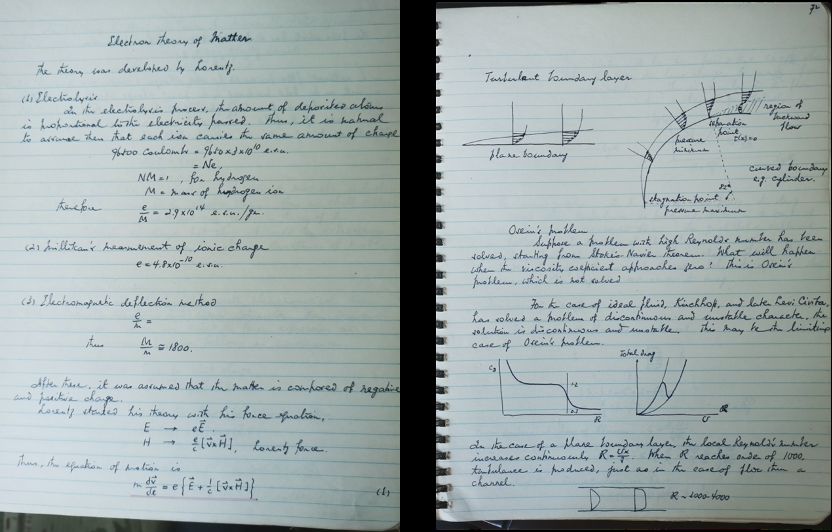 Electron theory of Matter
The theory was developed by Lorentz.
(1) Electrolysis
In the electrolysis process, the amount of deposited atoms
is proportional to the electricity passed. Thus, it is natural
to assume then that each ion carries the same amount of charge
96500 Coulomb = 9650 x 3 x 10^10 e.s.u.
= Ne,
NM = 1, for hydrogen
M = mass of hydrogen ion
therefore e/M = 2.9 x 10^14 e.s.u./gr.
(2) Millikan's measurement of ionic charge
e = 4.8 x 10^-10 e.s.u.
(3) Electromagnetic deflection method
e/m =
thus M/m ≅ 1800.
After these, it was assumed that the matter is composed of negative
and positive charge.
Lorentz started his theory with his force equation,
E → eE⃗.
H → e/c [v⃗xH⃗], Lorentz force.
Thus, the equation of motion is
m dv⃗/dt = e{E⃗ + 1/c [v⃗xH⃗]}
(1)
72
Turbulent boundary layer
plane boundary
region of
backward
flow
separation
point
τ(x)=0
pressure
minimum
curved boundary
e.g. cylinder.
stagnation point
pressure maximum
Oseen's problem
Suppose a problem with high Reynolds number has been
solved, starting from Stokes-Navier theorem. What will happen
when the viscosity coefficient approaches zero? This is Oseen's
problem, which is not solved
For the case of ideal fluid, Kirchhoff, and late Levi Civita,
has solved a problem of discontinuous and unstable character, the
solution is discontinuous and unstable. This may be the limiting
case of Oseen's problem.
Total drag
R
U
In the case of a plane boundary layer, the local Reynolds number
increases continuously R = Ux/ν. When R reaches order of 1000
turbulence is produced, just as in the case of flow thru a
channel.
R ~ 1000-4000